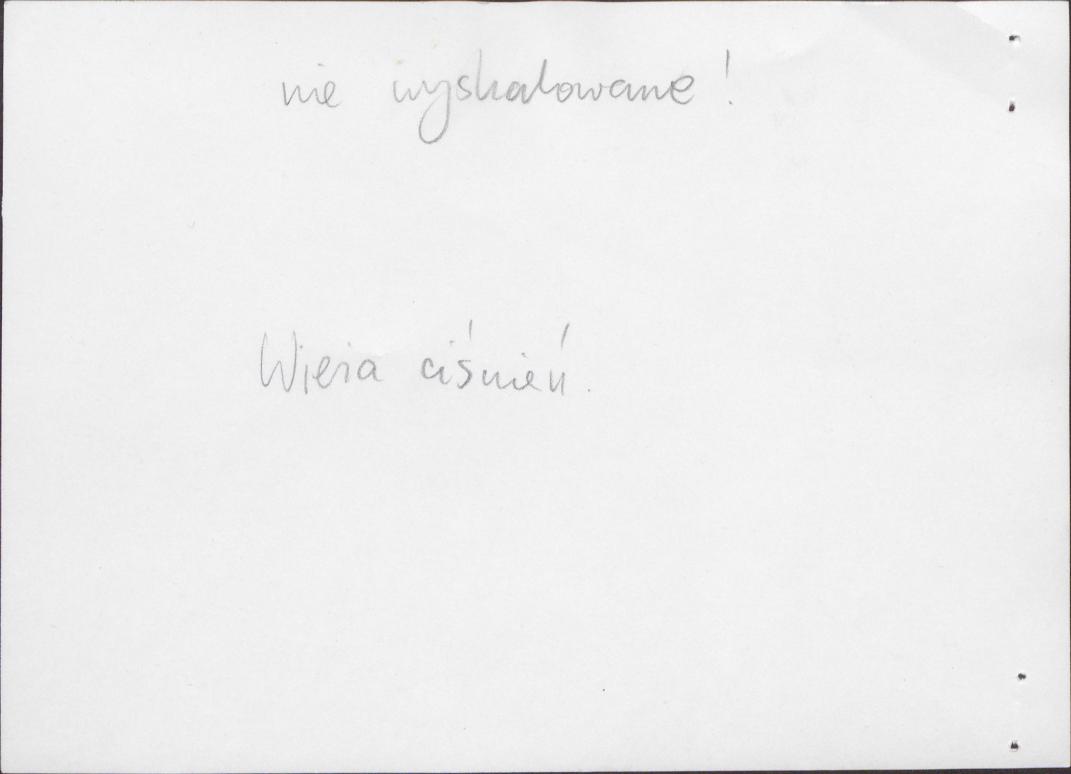 nie wyskalowane!
Wieża ciśnień.